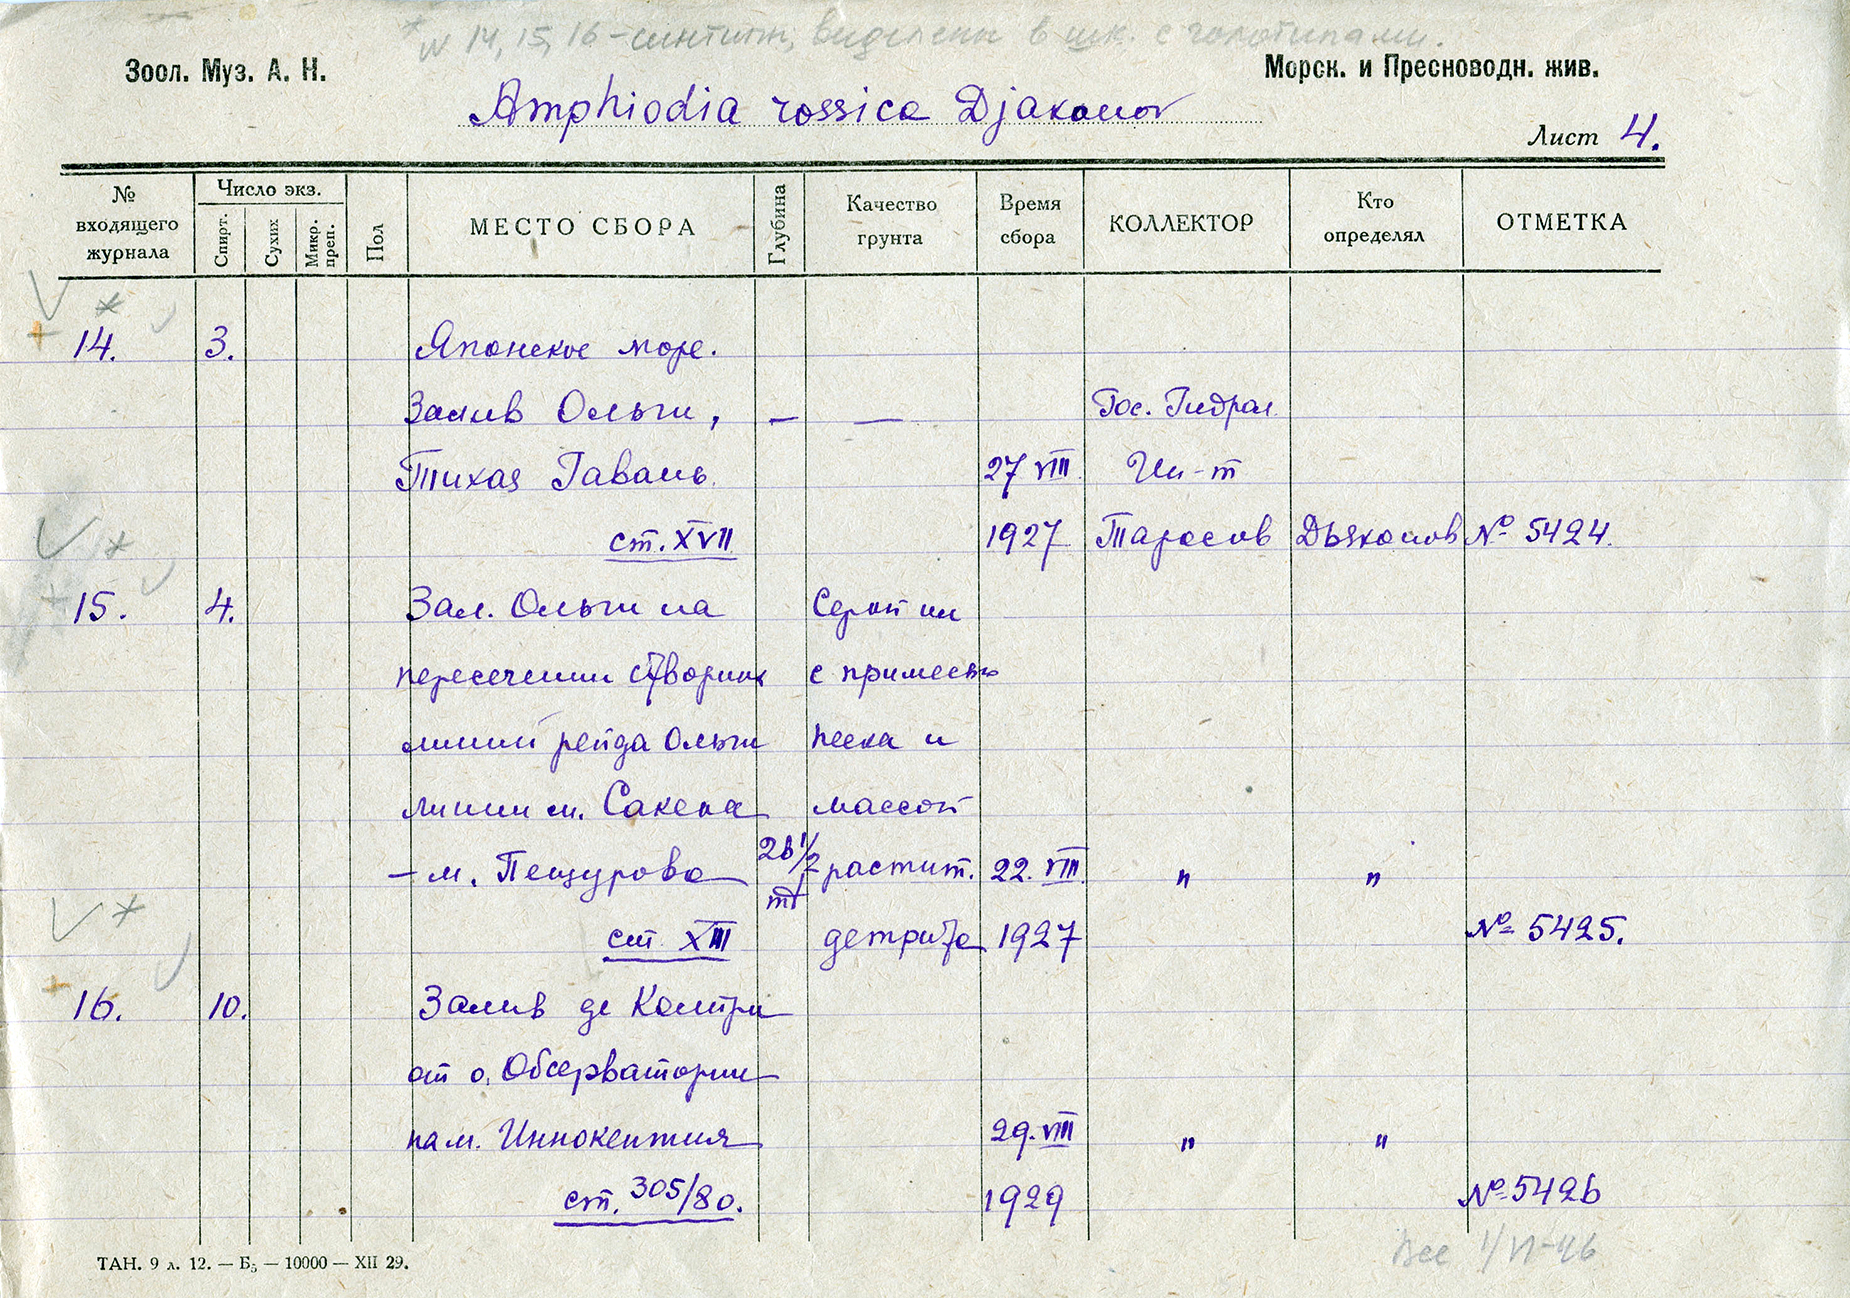 * № 14, 15, 16 - синтипы, выделены в шк. с голотипами.
Зоол. Муз. А. Н.
Морск. и Пресноводн. жив.
Amphiodia rossica Djakonov
Лист 4.
№ входящего журнала
Число экз.
Спирт.
Сухих
Микр. преп.
Пол
МЕСТО СБОРА
Глубина
Качество грунта
Время сбора
КОЛЛЕКТОР
Кто определял
ОТМЕТКА
14. 3. Японское море.
Залив Ольги, — — Гос. Гидрол.
Тихая Гавань. 27 VIII Ин-т
ст. XVII 1927 Тарасов Дьяконов № 5424.
15. 4. Зал. Ольги на Серый ил
пересечении створных с примесью
линий рейда Ольги песка и
линии м. Сакена массой
— м. Пещурова 26 1/2 растит. 22. VIII " "
ст XIII детрита 1927 № 5425.
16. 10. Залив де Кастри
от о. Обсерватории
на м. Иннокентия 29. VIII " "
ст. 305/80. 1929 № 5426
Все 1/VI-46
ТАН. 9 л. 12. — Б5 — 10000 — XII 29.